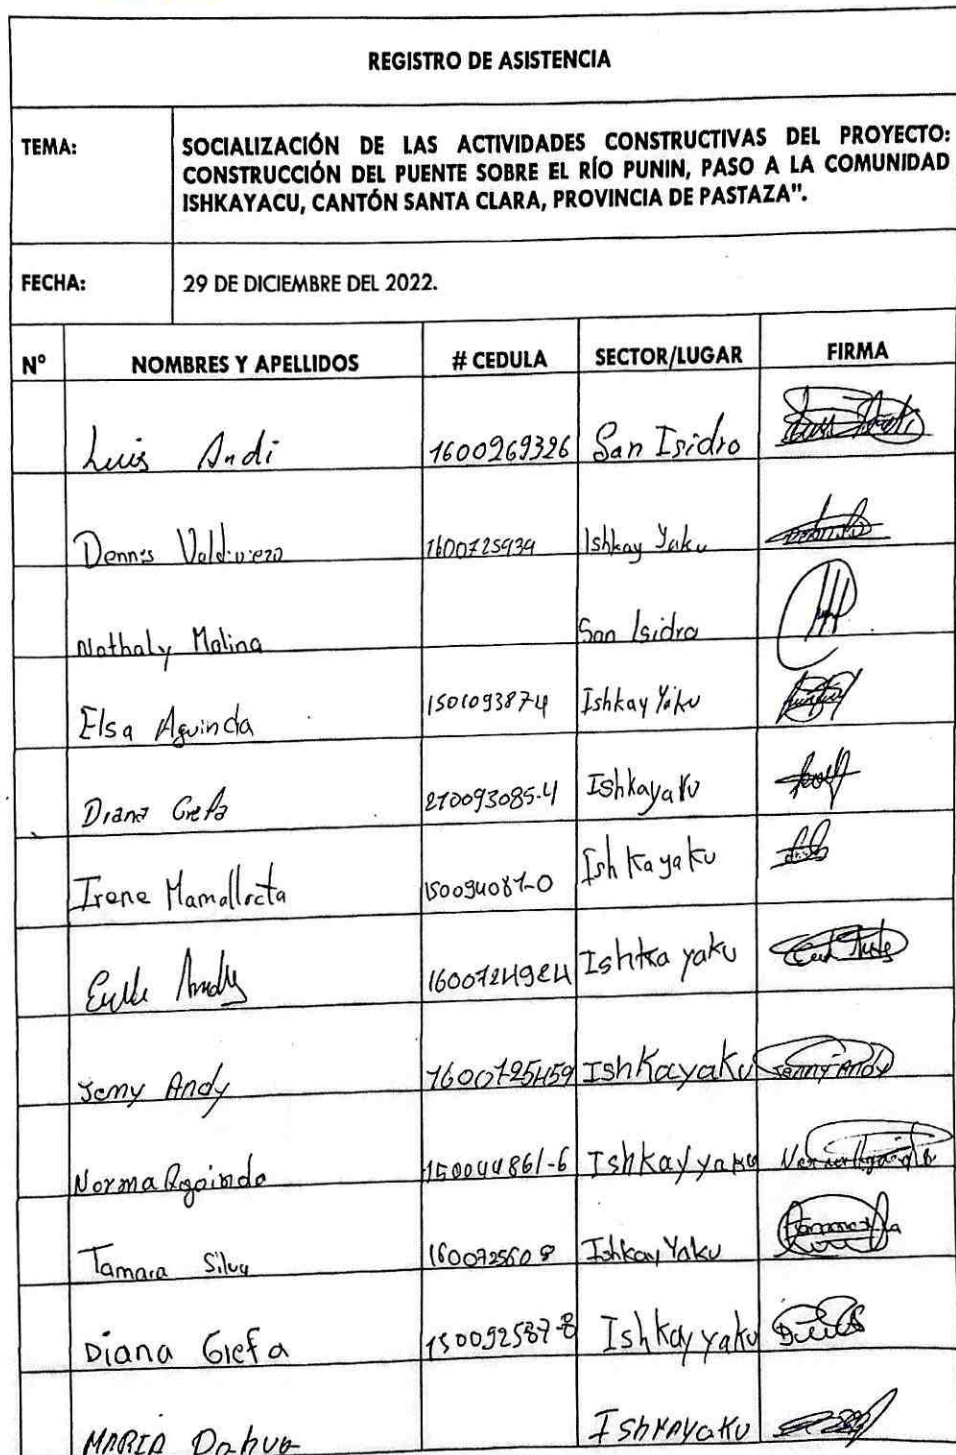 REGISTRO DE ASISTENCIA
TEMA: SOCIALIZACIÓN DE LAS ACTIVIDADES CONSTRUCTIVAS DEL PROYECTO:
CONSTRUCCIÓN DEL PUENTE SOBRE EL RÍO PUNIN, PASO A LA COMUNIDAD
ISHKAYACU, CANTÓN SANTA CLARA, PROVINCIA DE PASTAZA".
FECHA: 29 DE DICIEMBRE DEL 2022.
N° NOMBRES Y APELLIDOS # CEDULA SECTOR/LUGAR FIRMA
Luis Andi 1600269326 San Isidro
Dennis Valdiviezo 1600725939 Ishkay Yaku
Nathaly Molina San Isidro
Elsa Aguinda 150109387-4 Ishkay Yaku
Diana Grefa 210093085-4 Ishkayaku
Irene Mamallacta Ishkayaku
Andy 1600724924 Ishka yaku
Jemy Andy 1600725459 Ishkayaku Jenny Andy
Norma Aguinda 150044861-6 Ishkay yaku
Tamara Silva 160072560 8 Ishkay Yaku
Diana Grefa 150092587-8 Ishkay yaku
MARIA Dahua Ishkayaku